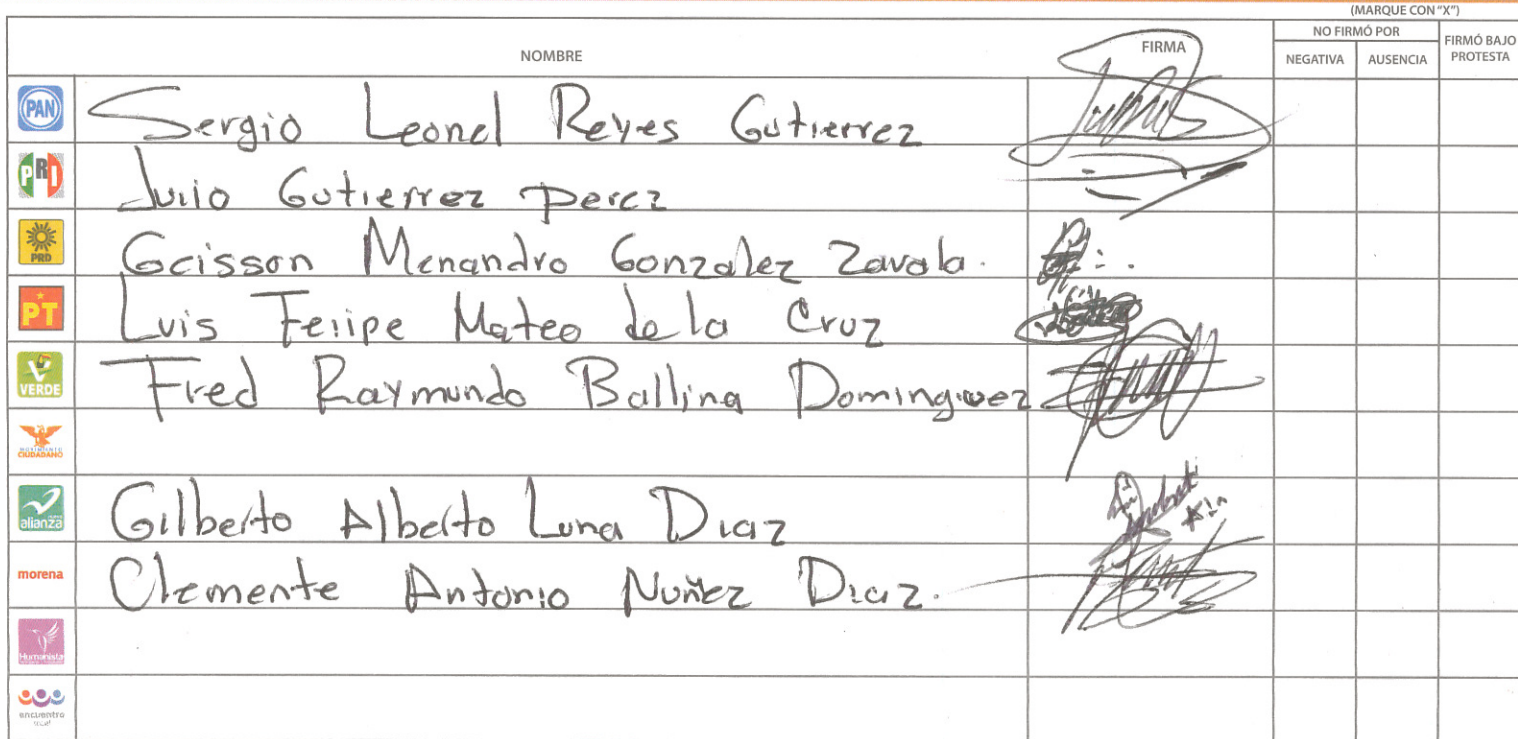 (MARQUE CON "X")
NOMBRE FIRMA NO FIRMÓ POR FIRMÓ BAJO PROTESTA
NEGATIVA AUSENCIA
PAN Sergio Leonel Reyes Gutierrez
PRI Julio Gutierrez Perez
PRD Geisson Menandro Gonzalez Zavala.
PT Luis Felipe Mateo de la Cruz
VERDE Fred Raymundo Ballina Dominguez
MOVIMIENTO CIUDADANO
nueva alianza Gilberto Alberto Luna Diaz
morena Clemente Antonio Nuñez Diaz.
Humanista
encuentro social